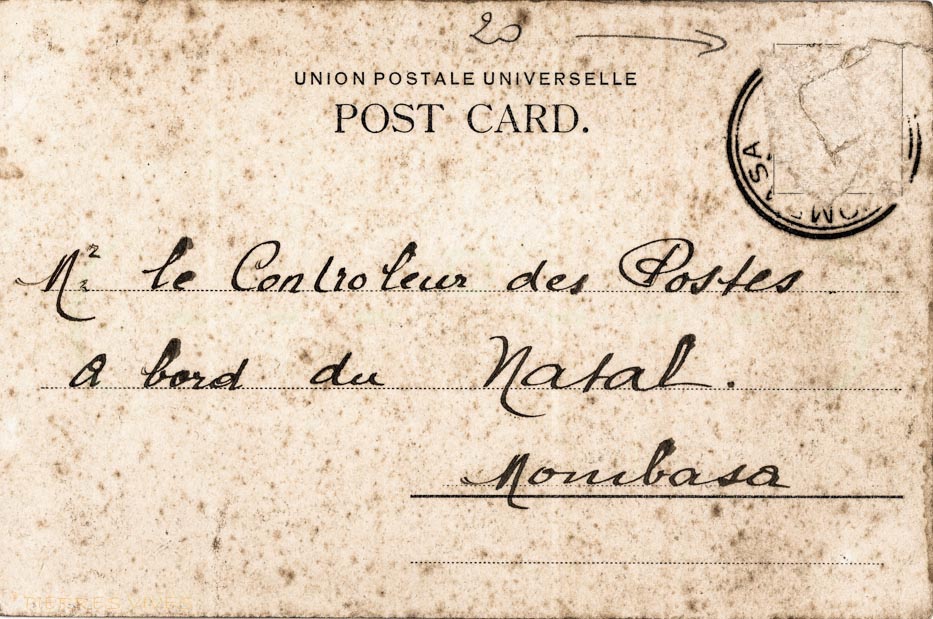 20
UNION POSTALE UNIVERSELLE
POST CARD.
Mr le Controleur des Postes
A bord du Natal.
Mombasa